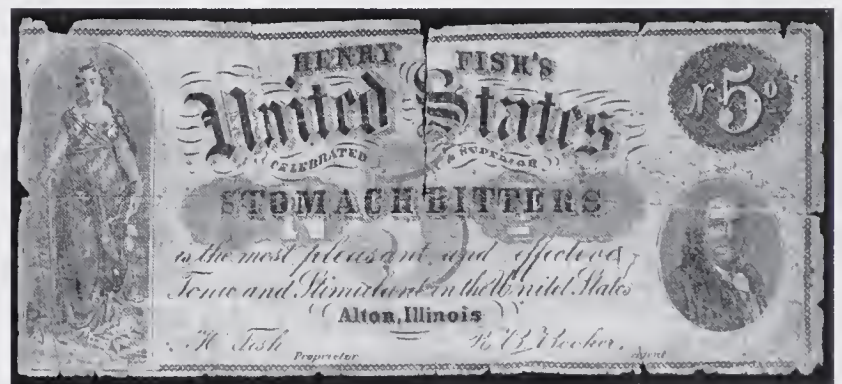 HENRY FISH'S
United States
CELEBRATED & SUPERIOR
STOMACH BITTERS
is the most pleasant and effective
Tonic and Stimulant in the United States
Alton, Illinois
H. Fish
Proprietor
R. B. Booker.
Agent
No 5